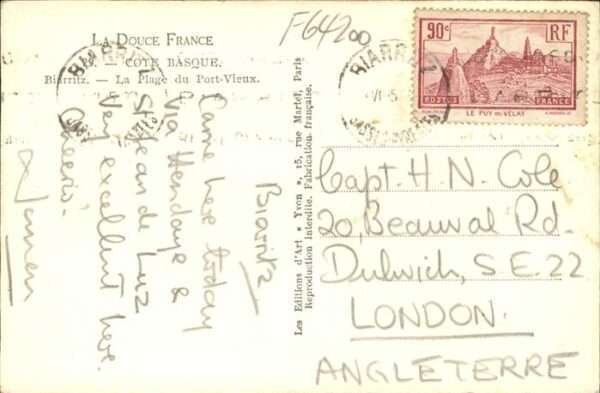 LA DOUCE FRANCE
CÔTE BASQUE.
Biarritz. — La Plage du Port-Vieux.
F64200
BIARRITZ
90c RF
POSTES FRANCE
LE PUY EN VELAY
BIARRITZ
Biarritz
Came here today
Via Hendaye &
St Jean de Luz
Very excellent here.
Cheerio.
Les Editions d'Art « Yvon », 15, rue Martel, Paris
Reproduction interdite. Fabrication française.
Capt. H. N. Cole
20, Beauval Rd.
Dulwich, S.E. 22
LONDON.
ANGLETERRE